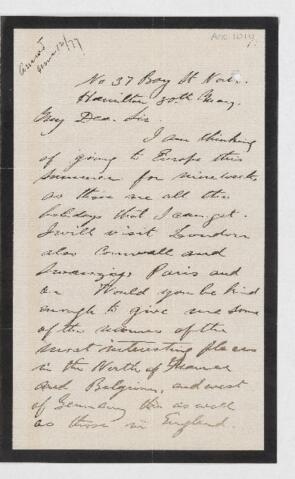 Ans'd
June 12/77
No 37 Bay St North
Hamilton 30th May.
My Dear Sir
I am thinking
of going to Europe this
summer for nine weeks
as those are all the
holidays that I can get.
I will visit London
also Cornwall and
Swanage, Paris and
on Would you be kind
enough to give me some
of the names of the
most interesting places
in the North of France
and Belgium, and west
of Germany as well
as those in England.